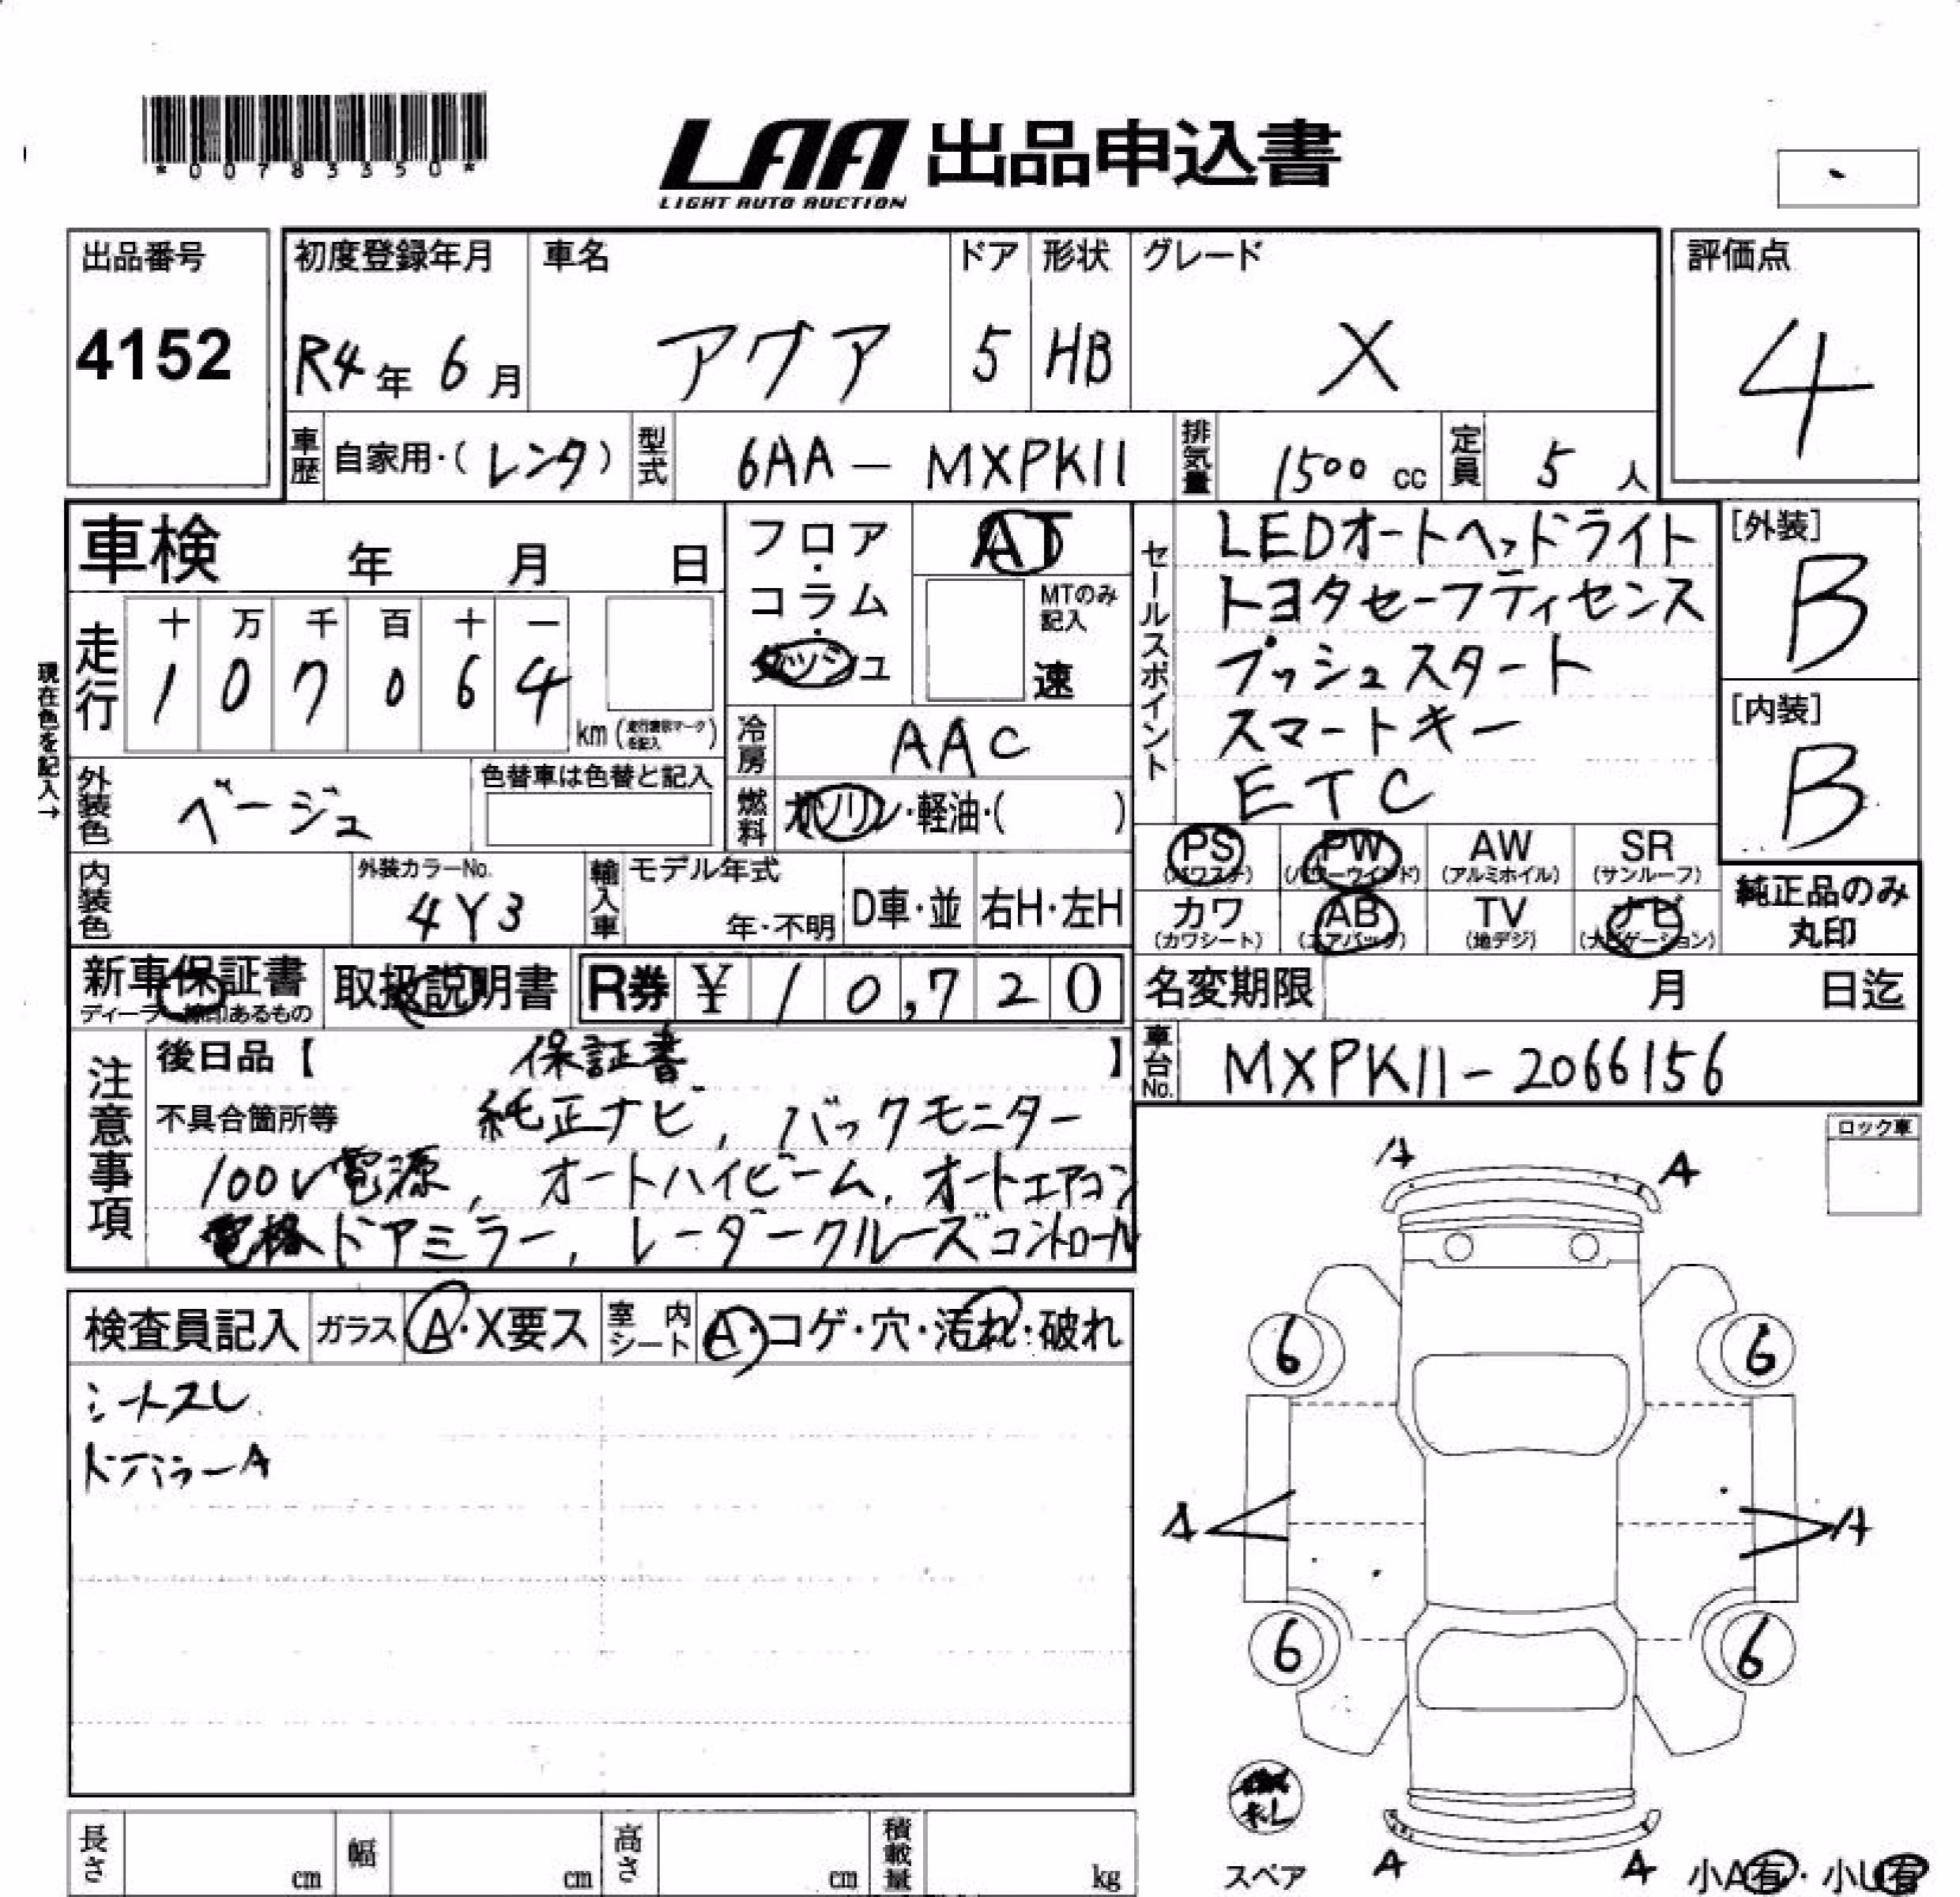 *00783350*
LAA 出品申込書
LIGHT AUTO AUCTION
出品番号
4152
初度登録年月
R4年 6月
車名
アクア
ドア
5
形状
HB
グレード
X
評価点
4
車歴 自家用・(レンタ)
型式 6AA - MXPK11
排気量 1500 cc
定員 5 人
車検 年 月 日
フロア・コラム・ダッシュ
AT
MTのみ記入
速
セールスポイント
LEDオートヘッドライト
トヨタセーフティセンス
プッシュスタート
スマートキー
ETC
[外装]
B
[内装]
B
現在色を記入→
走行
十 万 千 百 十 一
1 0 7 0 6 4
km (走行表示マークを記入)
冷房 AAC
燃料 ガソリン・軽油・( )
外装色 ベージュ
色替車は色替と記入
内装色
外装カラーNo.
4Y3
輸入車
モデル年式
年・不明
D車・並
右H・左H
PS (パワステ)
PW (パワーウインド)
AW (アルミホイル)
SR (サンルーフ)
カワ (カワシート)
AB (エアバック)
TV (地デジ)
ナビ (ナビゲーション)
純正品のみ
丸印
新車保証書
取扱説明書
R券 ¥ 10,720
名変期限 月 日迄
車台No. MXPK11-2066156
注意事項
後日品【 保証書 】
不具合箇所等 純正ナビ, バックモニター
100V電源, オートハイビーム, オートエアコン
電格ドアミラー, レーダークルーズコントロール
ロック車
検査員記入
ガラス A・X要ス
室内シート A・コゲ・穴・汚れ・破れ
シートスレ
ドアミラーA
A A
6 6
A A
6 6
スペア
A A
小A有・小U有
長さ cm
幅 cm
高さ cm
積載量 kg